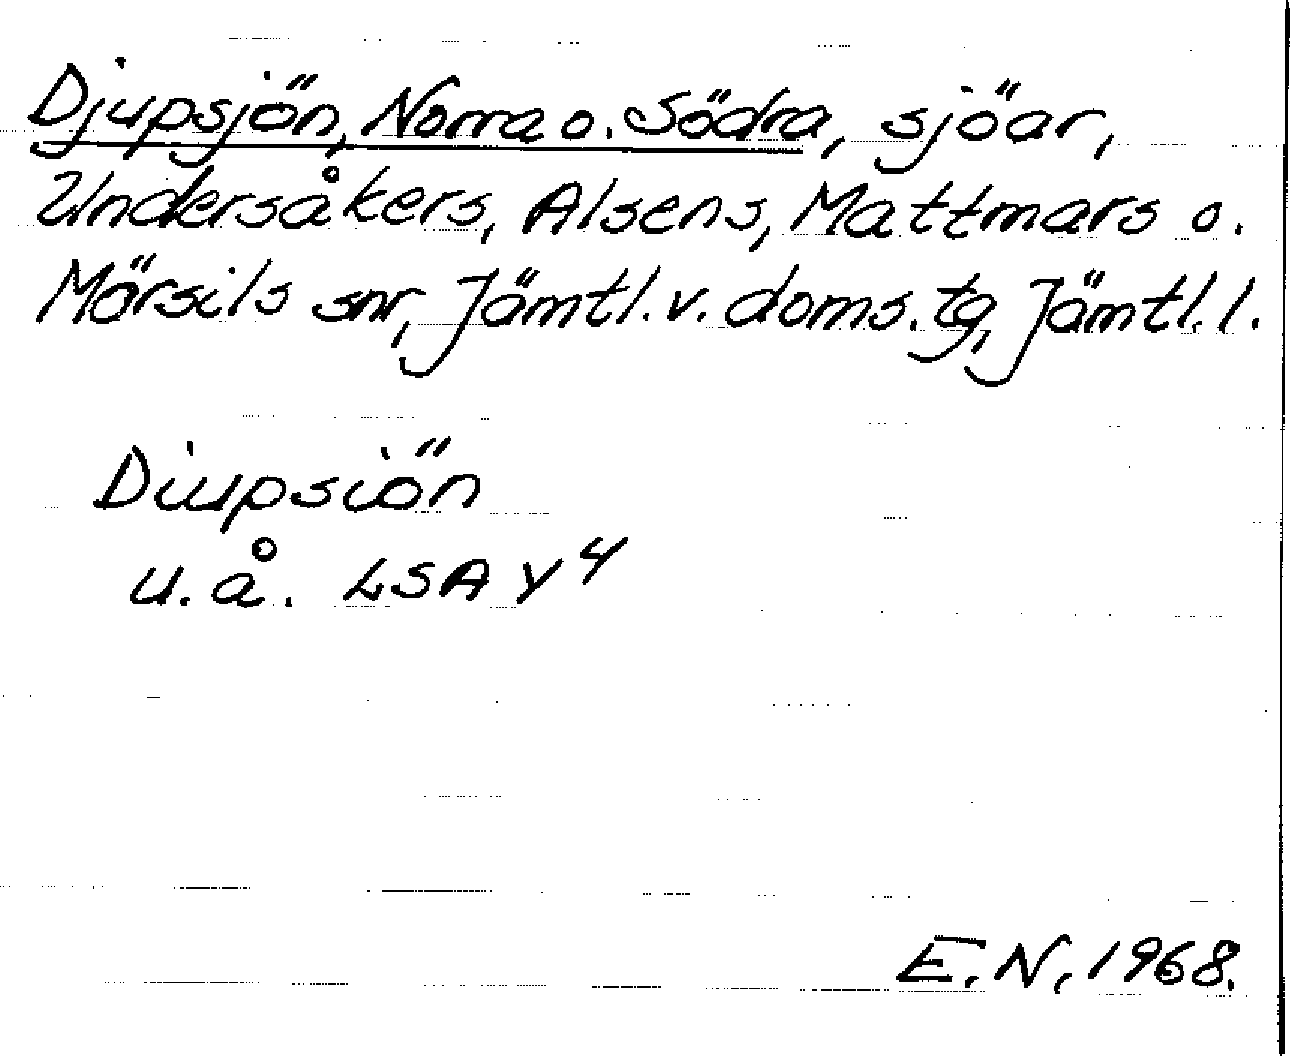 Djupsjön, Norra o. Södra, sjöar,
Undersåkers, Alsens, Mattmars o.
Mörsils snr, Jämtl. v. doms. tg, Jämtl. l.
Diupsiön
u. å. LSA Y 4
E. N. 1968.